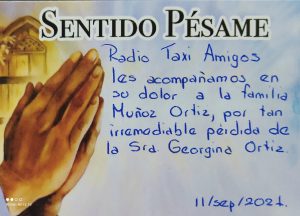 SENTIDO PÉSAME
Radio Taxi Amigos
les acompañamos en
su dolor a la familia
Muñoz Ortiz, por tan
irremediable pérdida de
la Sra Georgina Ortiz.
11/sep/2021.